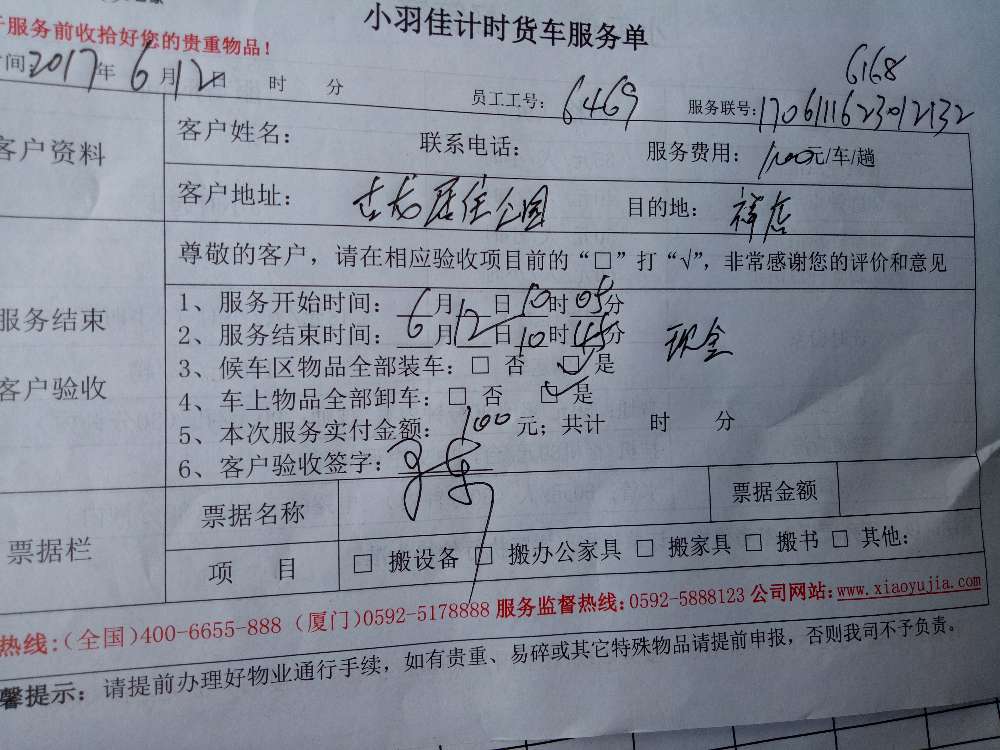 小羽佳计时货车服务单
服务前收拾好您的贵重物品！
间：2017年6月12日 时 分
员工工号：6469
6168
服务联号：1706111623012132
客户资料
客户姓名： 联系电话： 服务费用：100元/车/趟
客户地址：古龙居住公园 目的地：祥店
尊敬的客户，请在相应验收项目前的“□”打“√”，非常感谢您的评价和意见
服务结束
客户验收
1、服务开始时间：6月12日10时05分
2、服务结束时间：6月12日10时45分
现金
3、候车区物品全部装车：□ 否 ☑是
4、车上物品全部卸车：□ 否 ☑是
5、本次服务实付金额：100元；共计 时 分
6、客户验收签字：
票据栏
票据名称 票据金额
项 目 □ 搬设备 □ 搬办公家具 □ 搬家具 □ 搬书 □ 其他：
热线：（全国）400-6655-888（厦门）0592-5178888 服务监督热线：0592-5888123 公司网站：www.xiaoyujia.com
馨提示：请提前办理好物业通行手续，如有贵重、易碎或其它特殊物品请提前申报，否则我司不予负责。